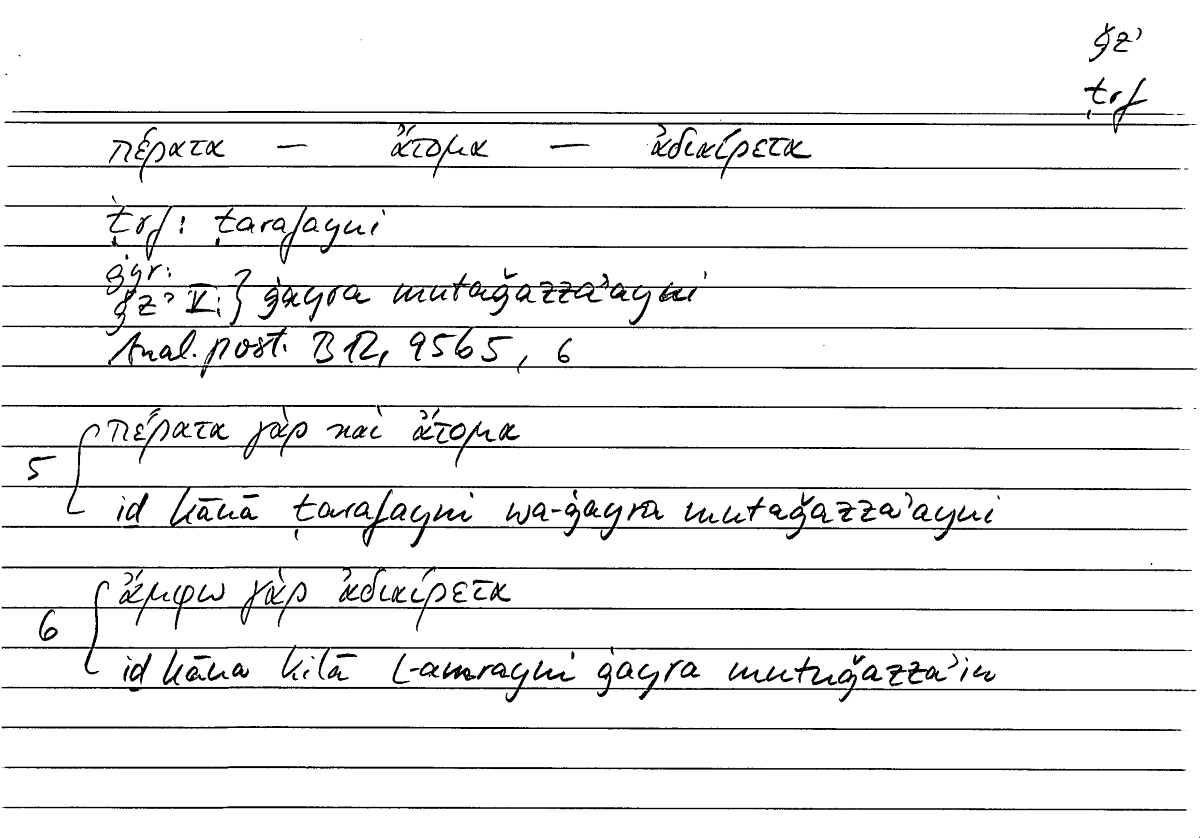 ǧzʾ
ṭrf
πέρατα — ἄτομα — ἀδιαίρετα
ṭrf: ṭarafayni
ġyr:
ǧzʾ V:} ġayra mutaǧazzaʾayni
Anal. post. B 12, 95b5, 6
5 {πέρατα γὰρ καὶ ἄτομα
id kānā ṭarafayni wa-ġayra mutaǧazzaʾayni
6 {ἄμφω γὰρ ἀδιαίρετα
id kāna kilā l-amrayni ġayra mutaǧazzaʾin